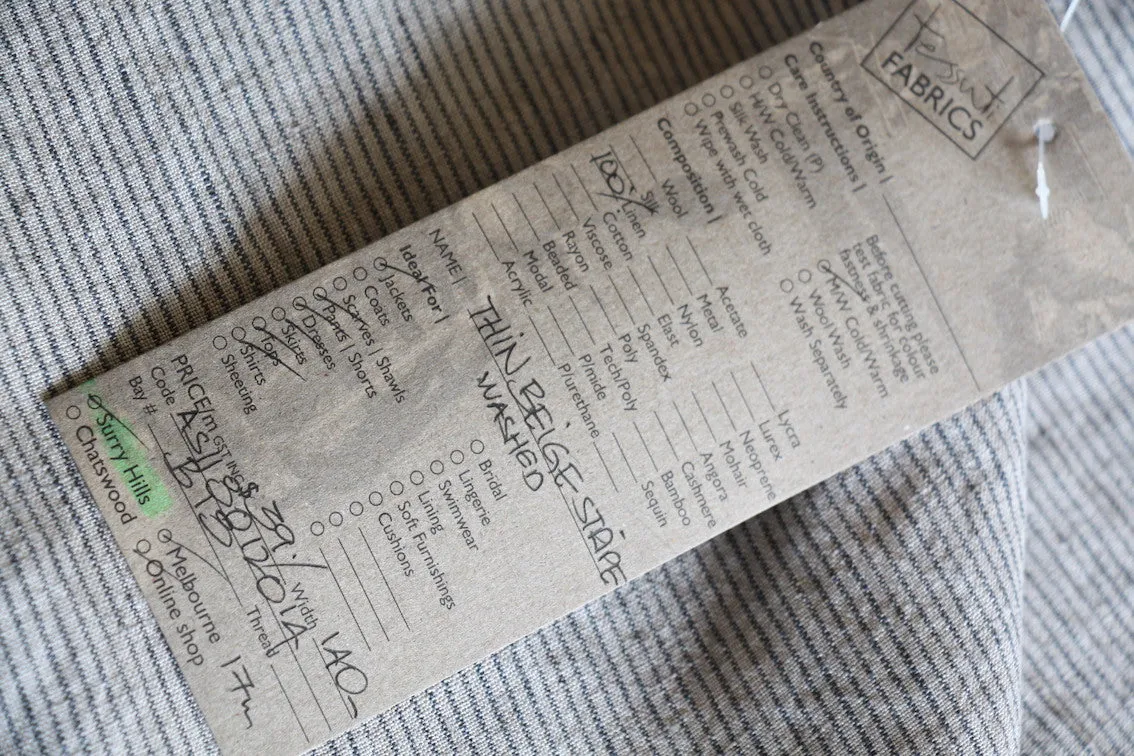 Tessuti
FABRICS
Country of Origin |
Care Instructions |
Dry Clean (P)
H/W Cold/Warm
Silk Wash
Prewash Cold
Wipe with wet cloth
Before cutting please
test fabric for colour
fastness & shrinkage
M/W Cold/Warm
Wool Wash
Wash Separately
Composition |
Wool
Silk
100% Linen
Cotton
Viscose
Rayon
Beaded
Modal
Acrylic
Acetate
Metal
Nylon
Elast
Spandex
Poly
Tech/Poly
P/mide
P/urethane
Lycra
Lurex
Neoprene
Mohair
Angora
Cashmere
Bamboo
Sequin
NAME | THIN BEIGE STRIPE
WASHED
Ideal For |
Jackets
Coats
Scarves | Shawls
Pants | Shorts
Dresses
Skirts
Tops
Shirts
Sheeting
Bridal
Lingerie
Swimwear
Lining
Soft Furnishings
Cushions
PRICE/m GST INC $ 39 Width 140
Code Thread
Bay #
Surry Hills
Chatswood
Melbourne
Online shop
17m